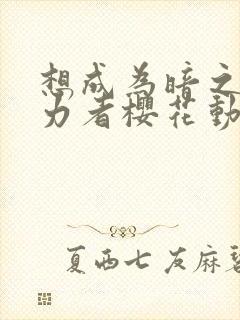 想成为暗之
力者樱花动
夏西七友麻碧